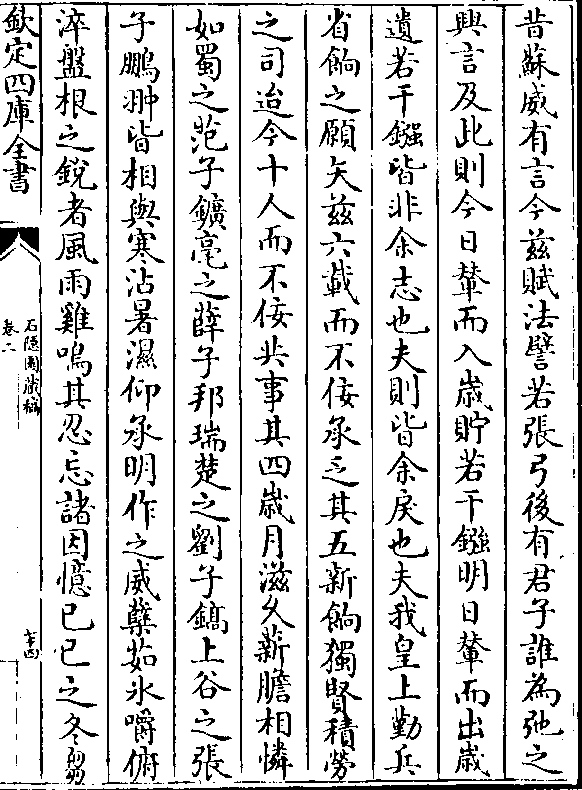 昔蘇威有言今兹賦法譬若張弓後有君子誰為弛之
興言及此則今日輦而入歳貯若干鏹明日輦而出歳
遺若干鏹皆非余志也夫則皆余戾也夫我皇上勤兵
省餉之願矢兹六載而不佞承乏其五新餉獨賢積勞
之司迨今十人而不佞共事其四歳月滋久薪膽相憐
如蜀之范子鑛亳之薛子邦瑞楚之劉子鎬上谷之張
子鵬翀皆相與寒沾暑濕仰承明作之威蘖茹氷嚼俯
淬盤根之鋭者風雨雞鳴其忍忘諸因憶已巳之冬芻
欽定四庫全書
石隱園藏稿
卷二